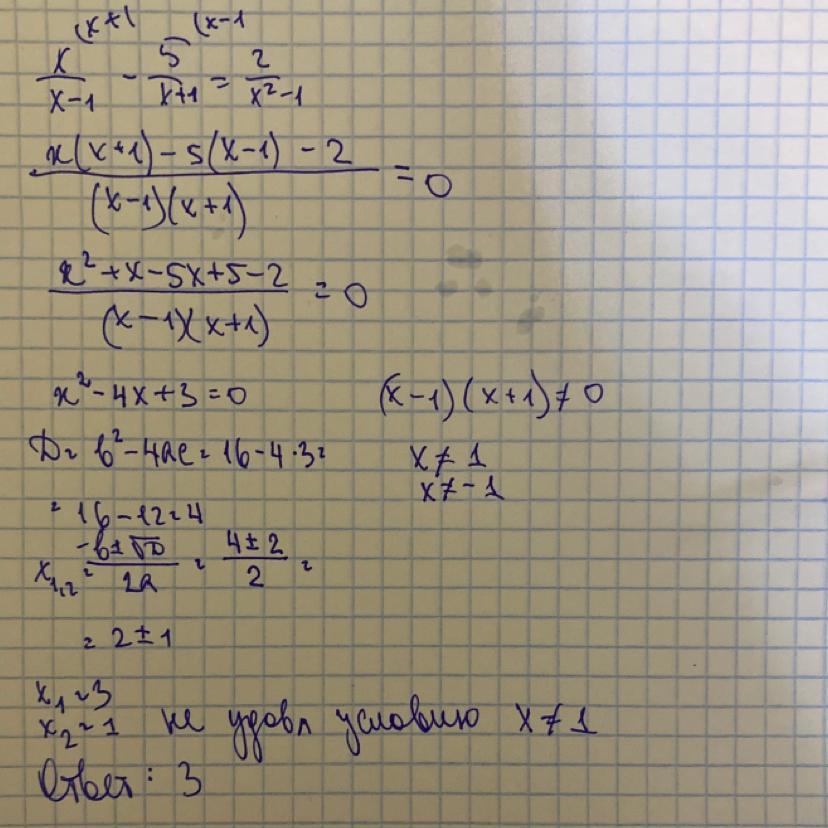 (x+1 (x-1
x/(x-1) - 5/(x+1) = 2/(x²-1)
(x(x+1) - 5(x-1) - 2)/((x-1)(x+1)) = 0
(x²+x-5x+5-2)/((x-1)(x+1)) = 0
x²-4x+3=0 (x-1)(x+1)≠0
D= b²-4ac= 16-4·3= x≠1
x≠-1
= 16-12=4
x₁,₂= (-b±√D)/2a = (4±2)/2 =
= 2±1
x₁=3
x₂=1 не удовл условию x≠1
Ответ: 3